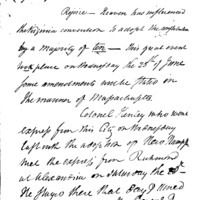 Rejoice — Heaven has influenced
the Virginia convention to adopt the constitution
by a Majority of ten — this great event
took place on Wednesday the 25th of June
some amendments
in the manner of Massachusetts
Colonel Henley who went
express from this City on Wednesday
last with the adoption of New Hamp
met the express from Richmond
at Alexandria on Saturday the 28th
He stayed there that Day &